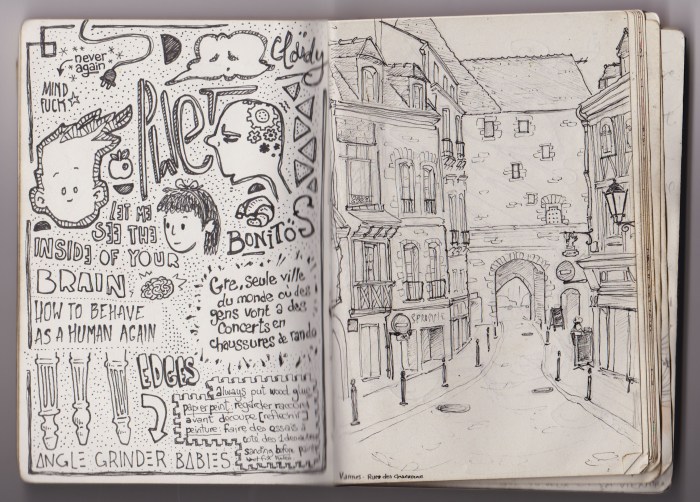 never
again
Cloïdy
MIND
FUCK
PWET
LET ME
SEE THE
INSIDE OF YOUR
BRAIN
BONITOS
HOW TO BEHAVE
AS A HUMAN AGAIN
Gre, seule ville
du monde où des
gens vont a des
concerts en
chaussures de rando
EDGES
always put wood glue
papier peint: regarder raccord
avant découpe
peinture: faire des essais à
coté des
sanding before
ANGLE GRINDER BABIES
Vannes - Rue des